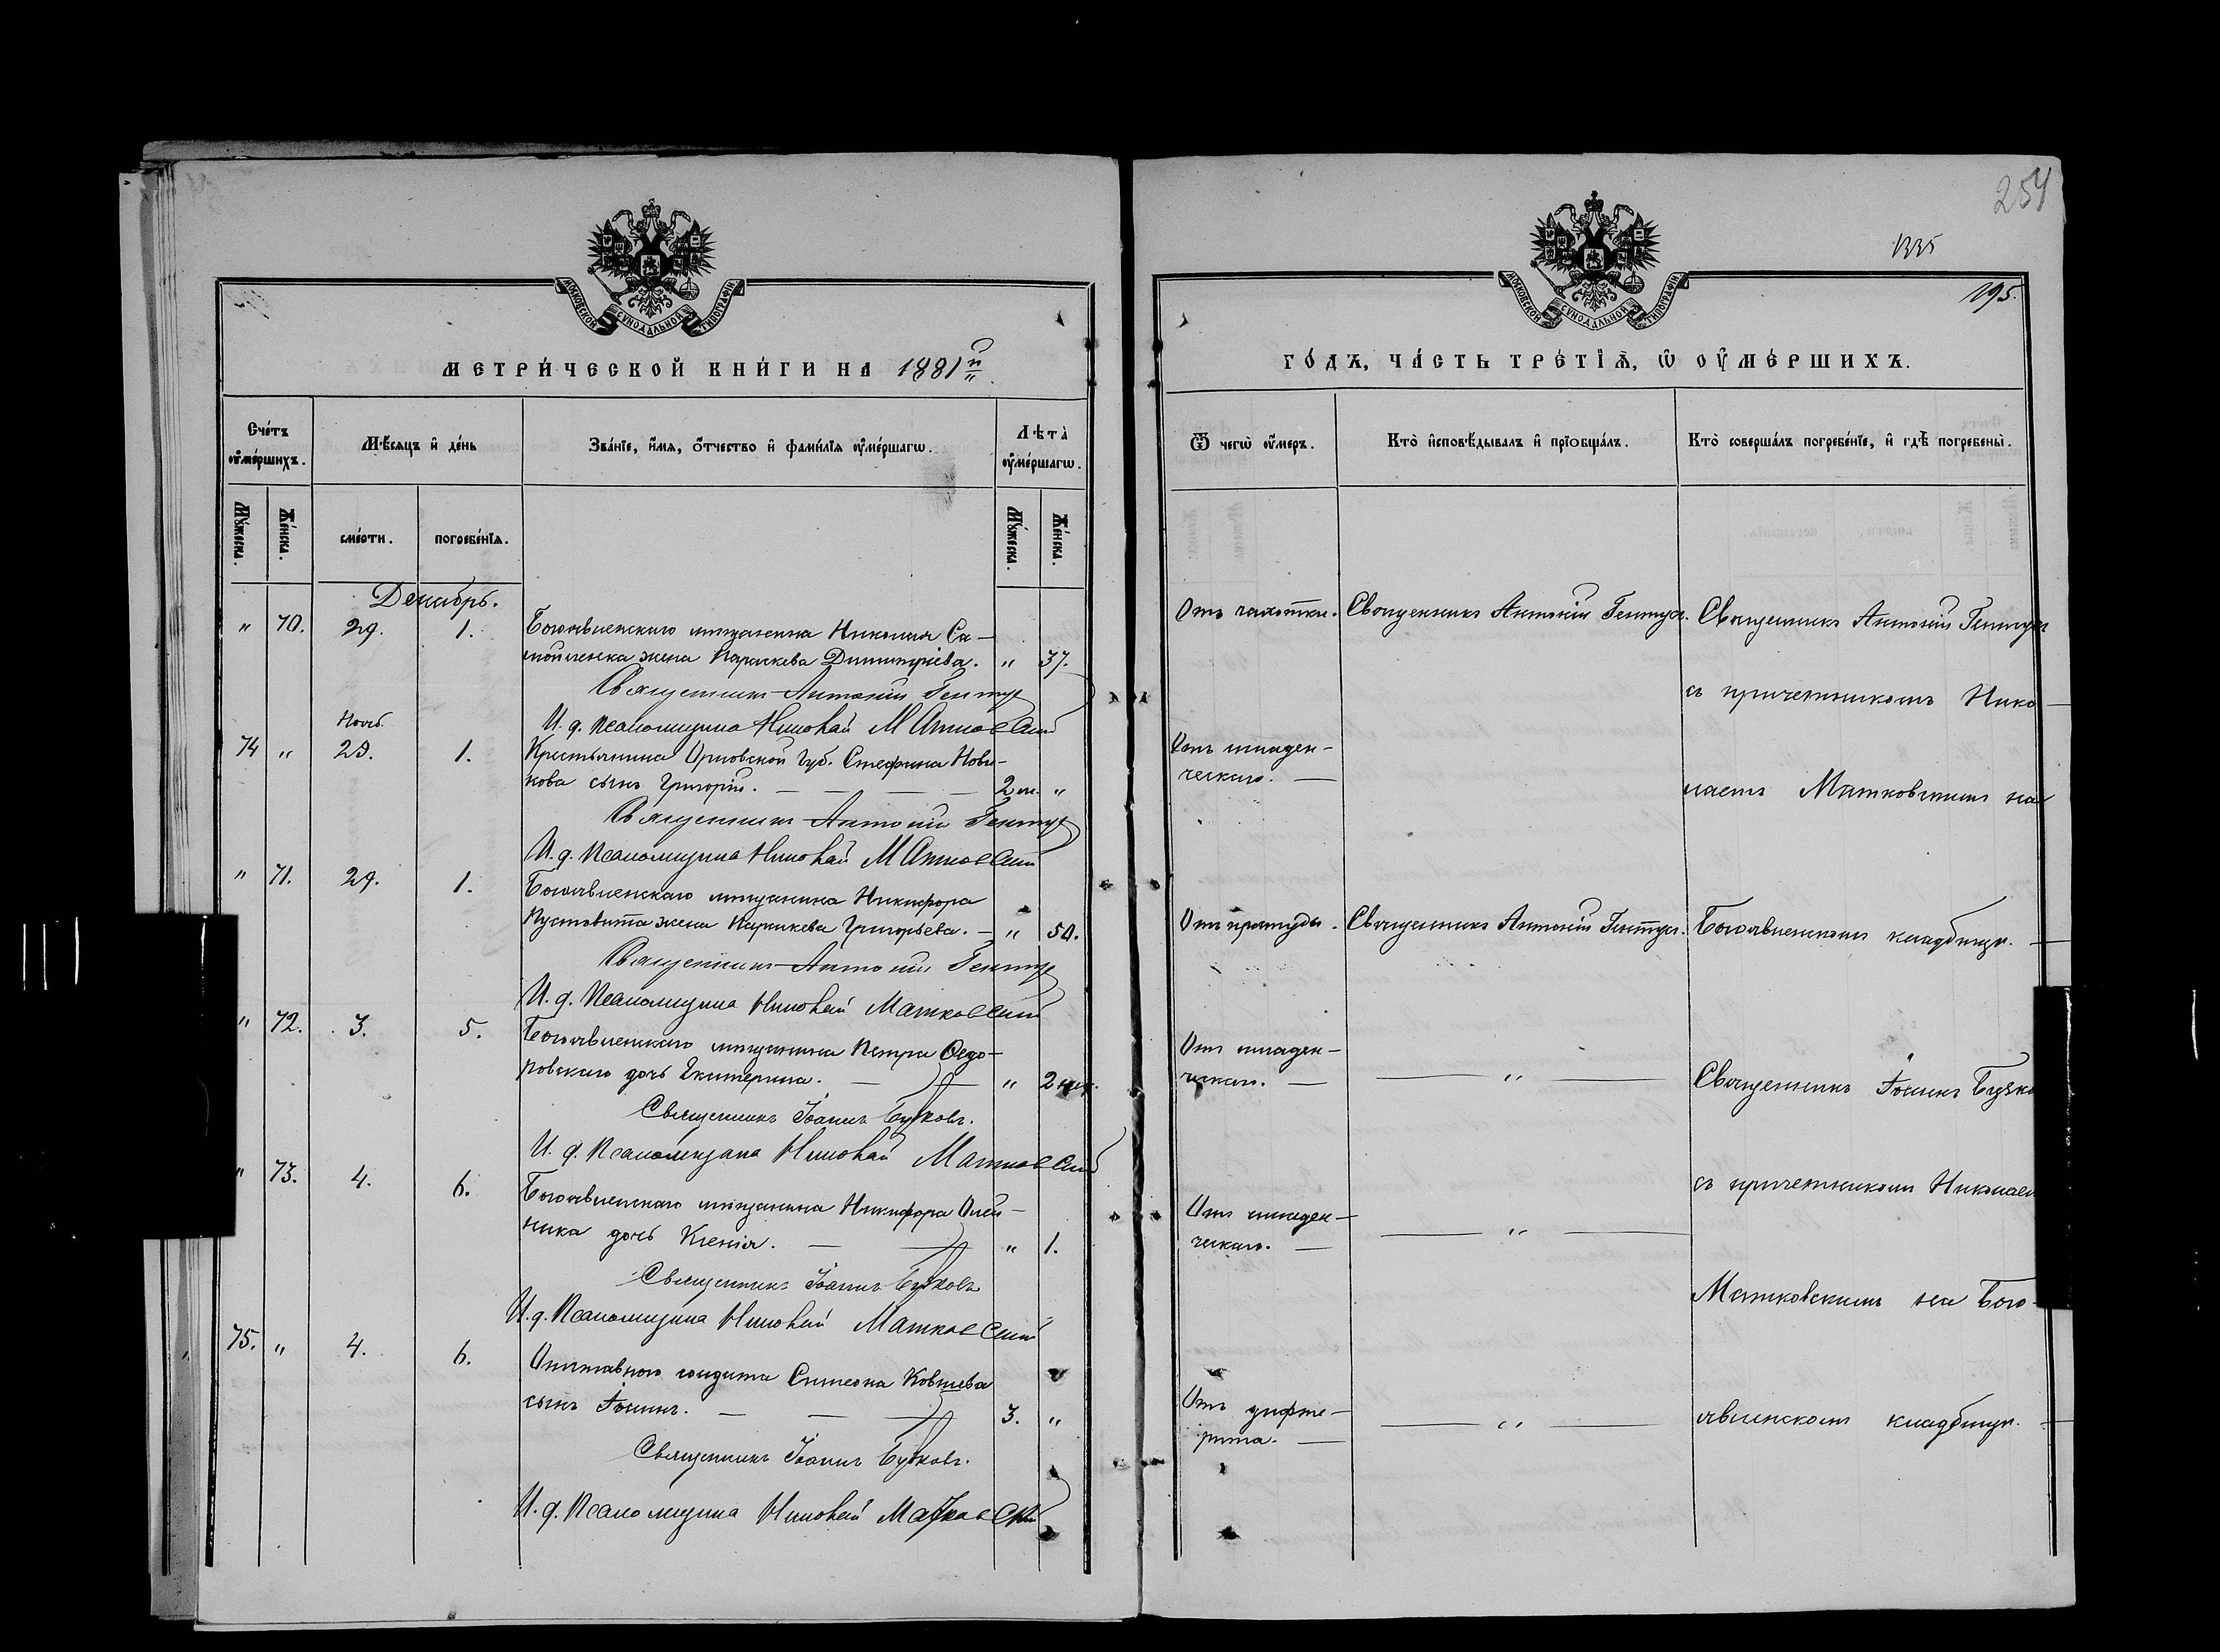 254
1335
195.
МОСКОВСКОЙ СѴНОДАЛЬНОЙ ТИПОГРАФІИ
МЕТРИ́ЧЕСКОЙ КНИ́ГИ НА 1881й
Сче́тъ оу҆ме́ршихъ.
Мѣ́сяцъ и҆ де́нь
Зва́нїе, и҆́мѧ, ѻ҆́тчество и҆ фами́лїѧ оу҆ме́ршагѡ.
Лѣта̀ оу҆ме́ршагѡ.
Мꙋ́жеска.
Же́нска.
сме́рти.
погребе́нїѧ.
Мꙋ́жеска.
Же́нска.
Декабрь.
" 70. 29. 1. Богоявленскаго мѣщанина Николая Са-
мойленка жена Параскева Димитріева. " 37.
Священникъ Антоній Гентуъ
И. д. Псаломщика Николай Матковскій
Нояб.
74 " 29. 1. Крестьянина Орловской Губ. Стефана Нови-
кова сынъ Григорій. — 2 м. "
Священникъ Антоній
И. д. Псаломщика Николай Матковскій
" 71. 29. 1. Богоявленскаго мѣщанина Никифора
Пустовита жена Параскева Григорьева. — " 50.
Священникъ Антоній
И. д. Псаломщика Николай Матковскій
" 72. 3. 5. Богоявленскаго мѣщанина Петра Ѳедо-
ровскаго дочь Екатерина. — " 2 нед.
Священникъ Іоаннъ Бучковъ.
И. д. Псаломщика Николай Матковскій
" 73. 4. 6. Богоявленскаго мѣщанина Никифора Олей-
ника дочь Ксенія. — " 1.
Священникъ Іоаннъ Бучковъ
И. д. Псаломщика Николай Матковскій
75. " 4. 6. Отставного солдата Симеона Ковшева
сынъ Іоаннъ. — 3. "
Священникъ Іоаннъ Бучковъ.
И. д. Псаломщика Николай Матковскій
МОСКОВСКОЙ СѴНОДАЛЬНОЙ ТИПОГРАФІИ
ГО́ДЪ, ЧА́СТЬ ТРЕ́ТЇѦ, Ѡ҆ ОУ҆МЕ́РШИХЪ.
Ѿ чегѡ̀ оу҆́меръ.
Кто̀ и҆сповѣ́дывалъ и҆ прїѡбща́лъ.
Кто̀ соверша́лъ погребе́нїе, и҆ гдѣ̀ погребены̀.
Отъ чахотки. Священникъ Антоній Священникъ Антоній
съ причетникомъ Нико-
лаемъ Матковскимъ на
Отъ младен-
ческаго. —
Отъ простуды. Священникъ Антоній Богоявленскомъ кладбищѣ. —
Отъ младен-
ческаго. — — " — Священникъ Іоаннъ
съ причетникомъ Николаем
Отъ младен-
ческаго. — — " —
Матковскимъ на Бого-
Отъ дифте-
рита. — — " — явленскомъ кладбищѣ. —